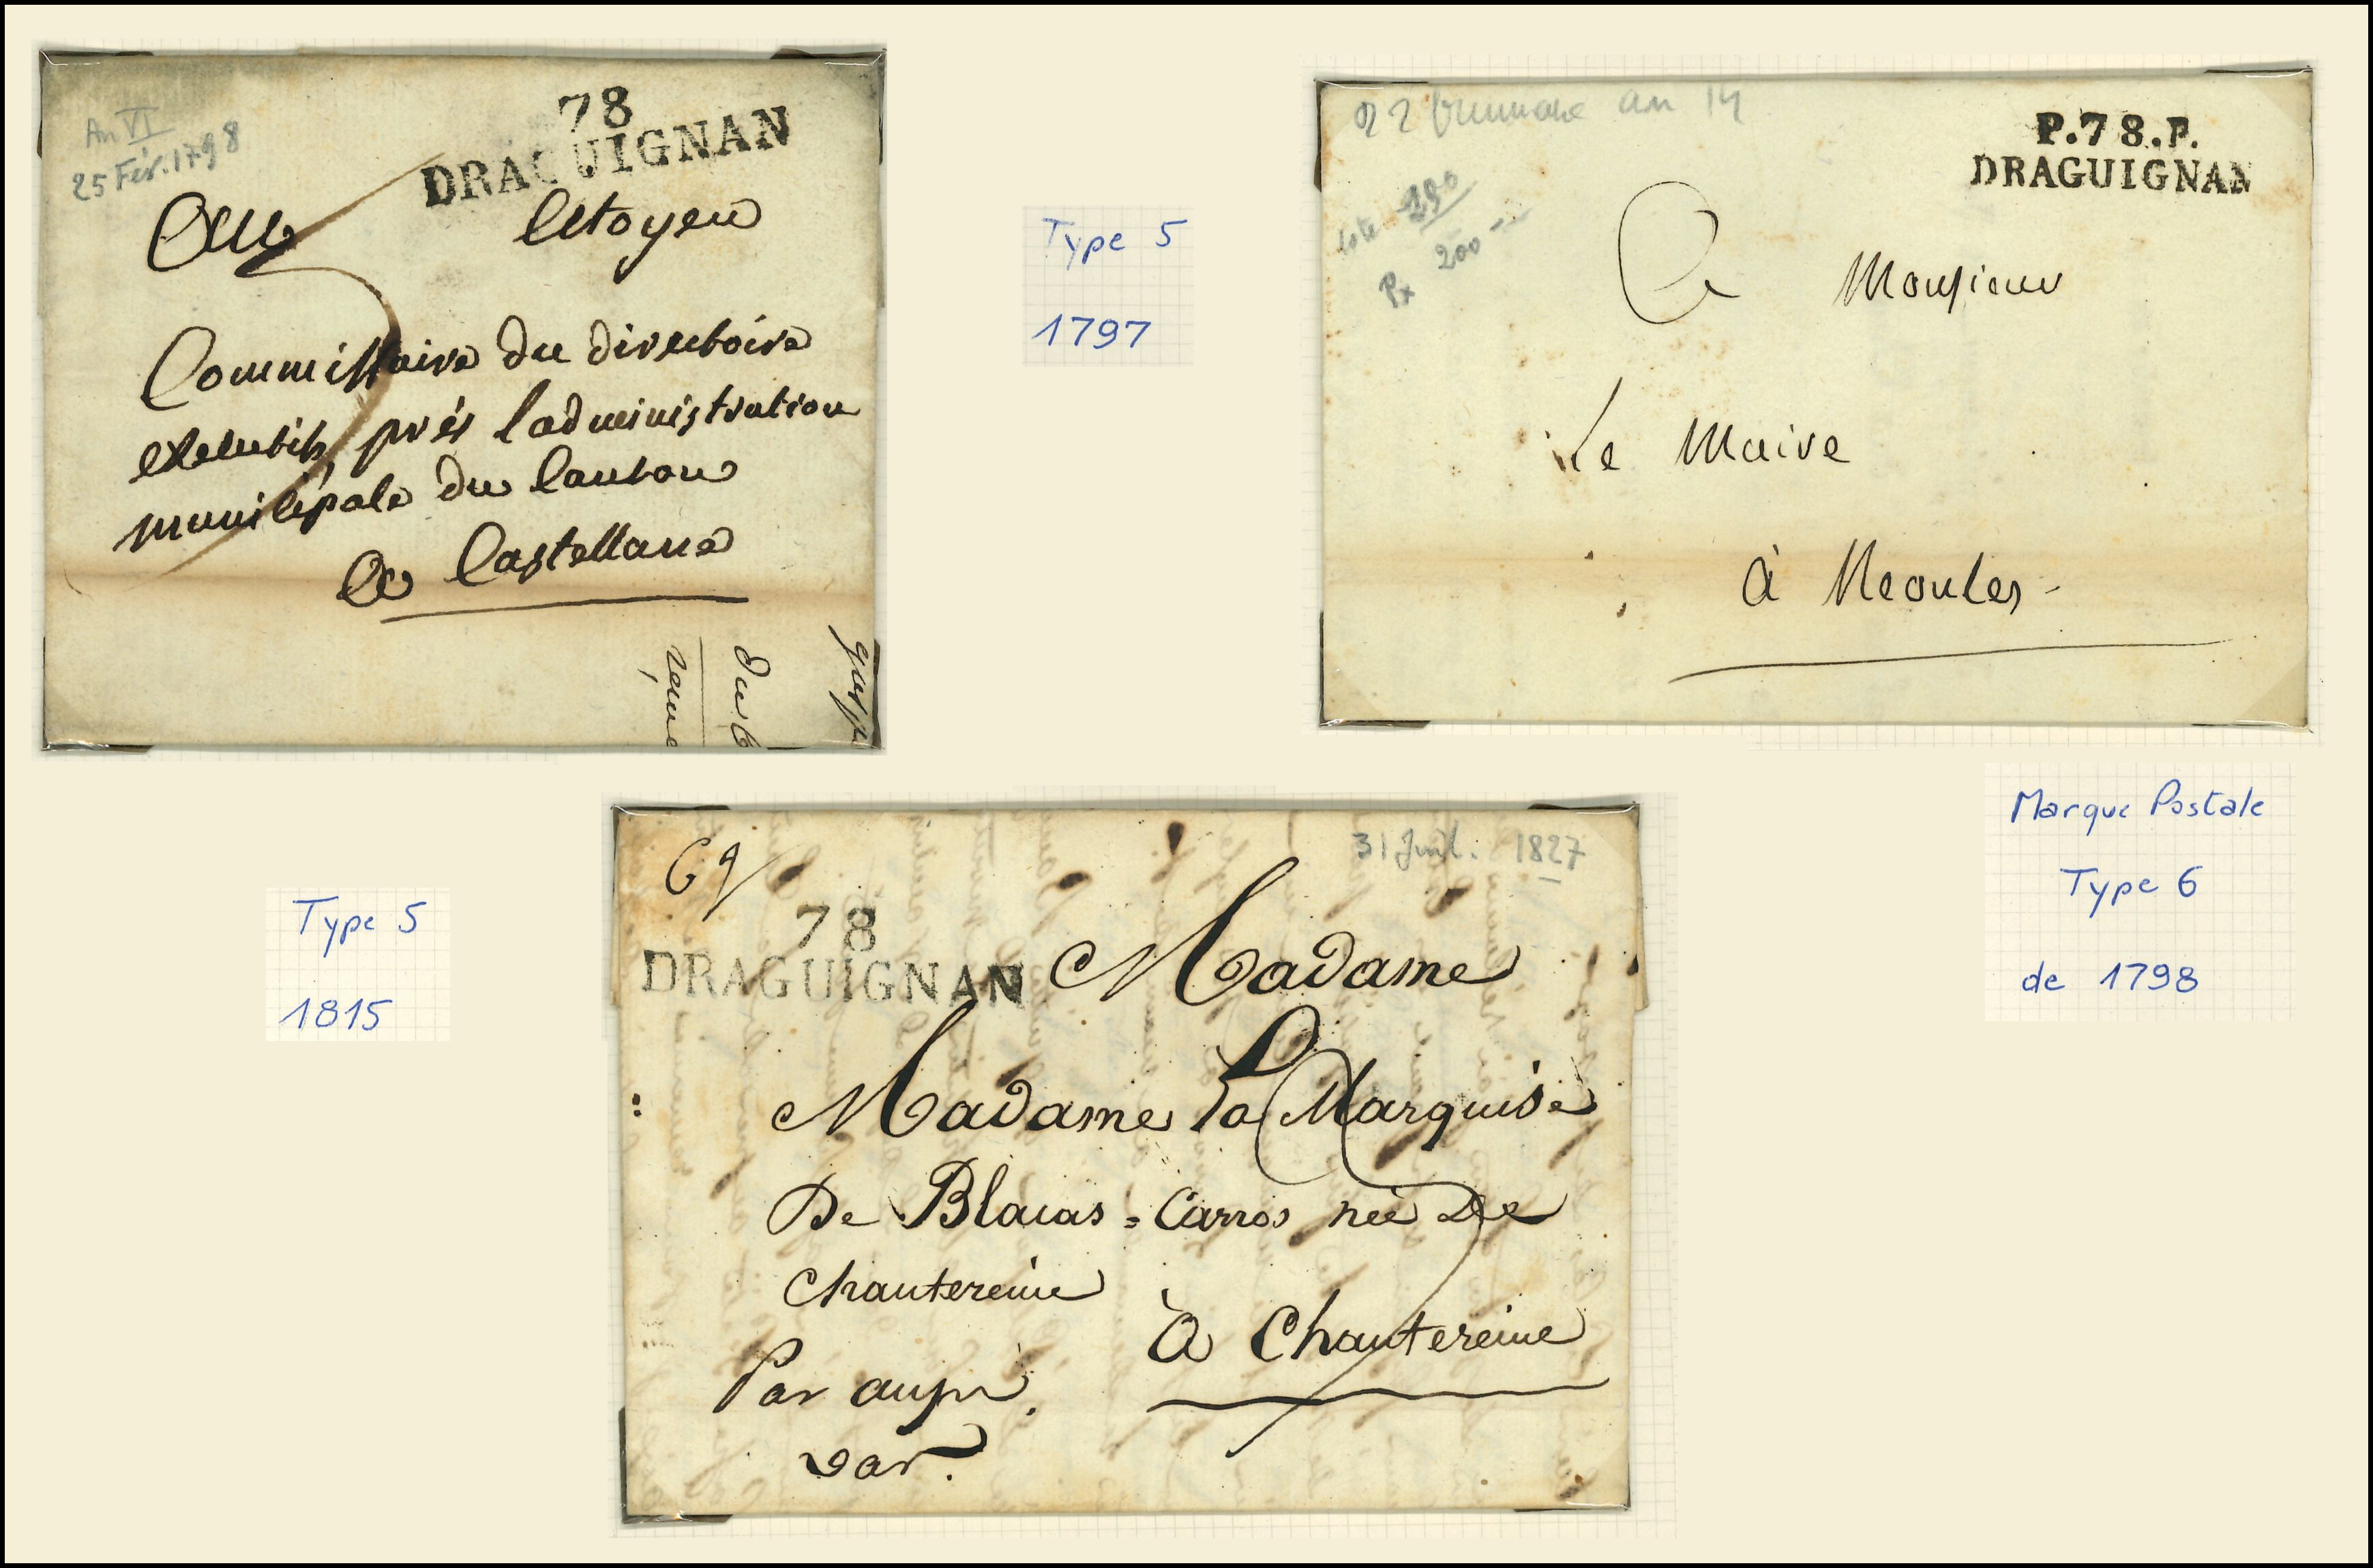 An VI
25 Fév. 1798
78
DRAGUIGNAN
Au Citoyen
Commissaire du directoire
executif, prés l'administration
municipale du Canton
a Castellane
Type 5
1797
22 brumaire an 14
cote 250
Px 200
P.78.P.
DRAGUIGNAN
A Monsieur
Le Maire
à Neoules
Marque Postale
Type 6
de 1798
Type 5
1815
31 Juil. 1827
78
DRAGUIGNAN
Madame
Madame la Marquise
De Blacas = Carros née De
Chantereine
à Chantereine
Par aups
var.